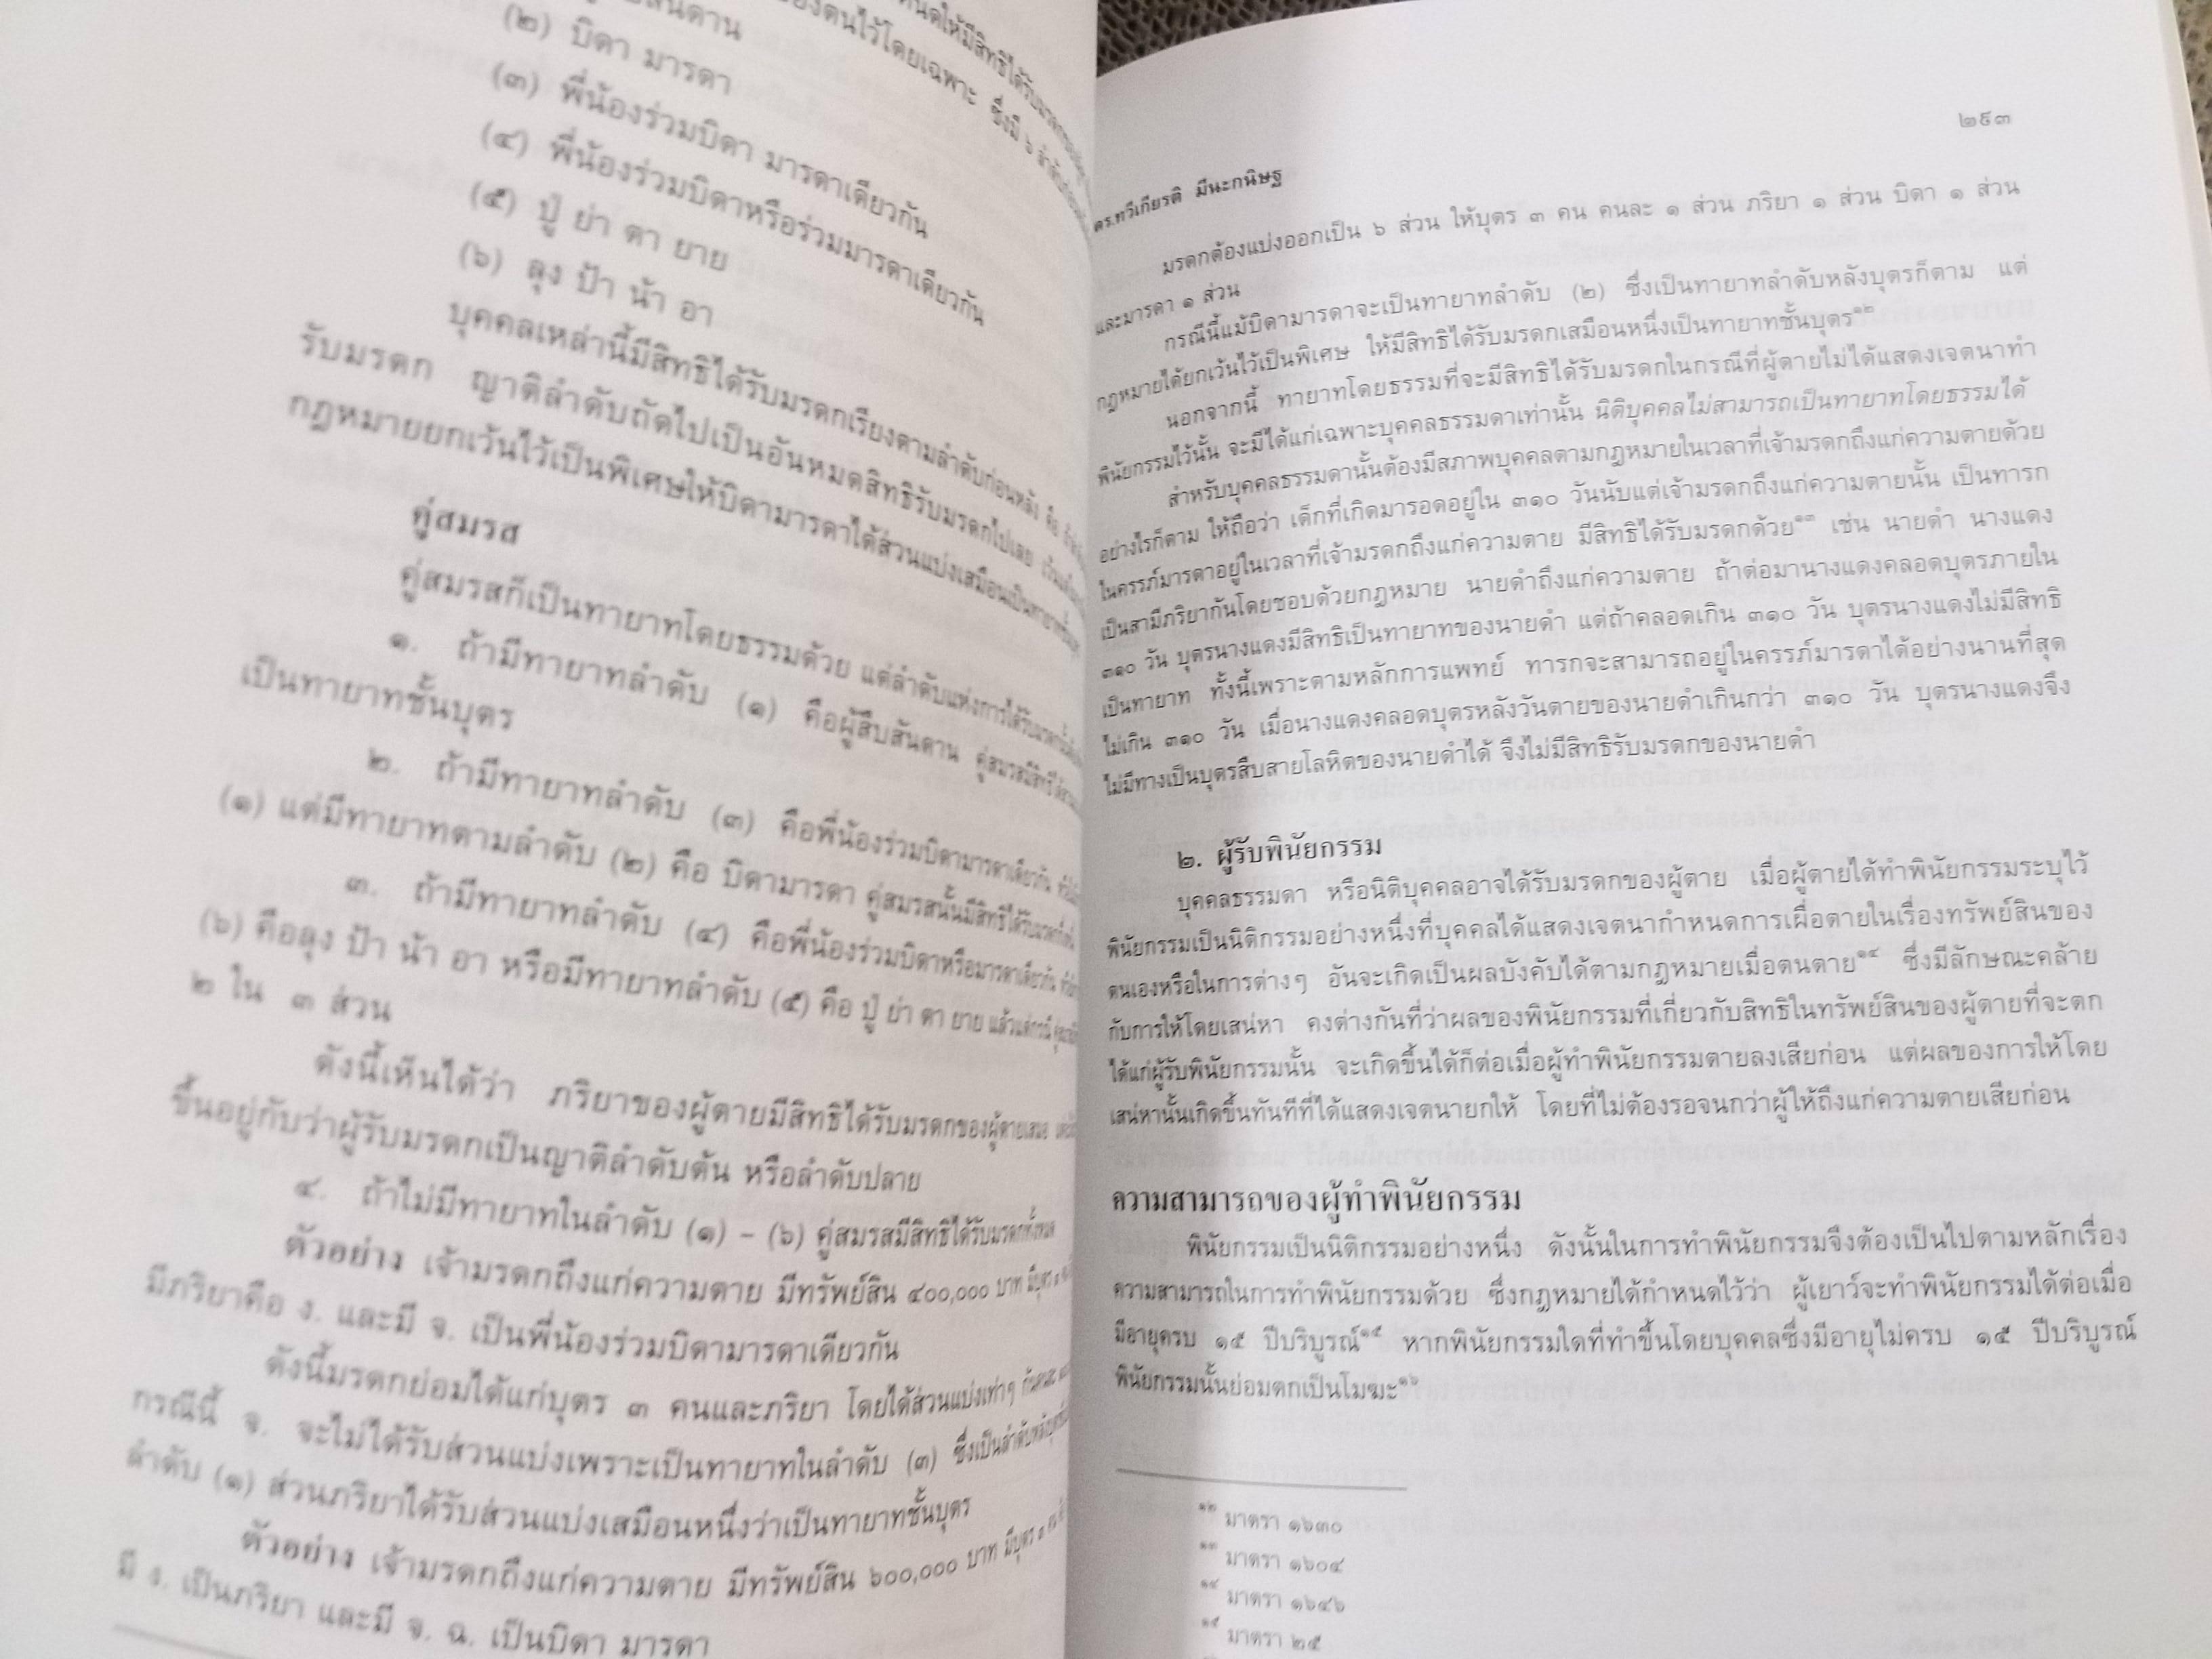 สันดาน
(๒) บิดา มารดา
(๓) พี่น้องร่วมบิดา มารดาเดียวกัน
(๔) พี่น้องร่วมบิดาหรือร่วมมารดาเดียวกัน
(๕) ปู่ ย่า ตา ยาย
(๖) ลุง ป้า น้า อา
บุคคลเหล่านี้มีสิทธิได้รับมรดกเรียงตามลำดับก่อนหลัง คือ
รับมรดก ญาติลำดับถัดไปเป็นอันหมดสิทธิรับมรดกไปเลย เว้นแต่
กฎหมายยกเว้นไว้เป็นพิเศษให้บิดามารดาได้ส่วนแบ่งเสมือนเป็นทายาทชั้นบุตร
คู่สมรส
คู่สมรสก็เป็นทายาทโดยธรรมด้วย แต่ลำดับแห่งการได้รับมรดกนั้น
๑. ถ้ามีทายาทลำดับ (๑) คือผู้สืบสันดาน คู่สมรสมีสิทธิได้
เป็นทายาทชั้นบุตร
๒. ถ้ามีทายาทลำดับ (๓) คือพี่น้องร่วมบิดามารดาเดียวกัน
(๑) แต่มีทายาทตามลำดับ (๒) คือ บิดามารดา คู่สมรสนั้นมีสิทธิได้รับมรดกกึ่งหนึ่ง
๓. ถ้ามีทายาทลำดับ (๔) คือพี่น้องร่วมบิดาหรือมารดาเดียวกัน
(๖) คือลุง ป้า น้า อา หรือมีทายาทลำดับ (๕) คือ ปู่ ย่า ตา ยาย แล้วแต่กรณี
๒ ใน ๓ ส่วน
ดังนี้เห็นได้ว่า ภริยาของผู้ตายมีสิทธิได้รับมรดกของผู้ตายเสมอ
ขึ้นอยู่กับว่าผู้รับมรดกเป็นญาติลำดับต้น หรือลำดับปลาย
๔. ถ้าไม่มีทายาทในลำดับ (๑) - (๖) คู่สมรสมีสิทธิได้รับมรดกทั้งหมด
ตัวอย่าง เจ้ามรดกถึงแก่ความตาย มีทรัพย์สิน ๔๐๐,๐๐๐ บาท มีบุตร
มีภริยาคือ ง. และมี จ. เป็นพี่น้องร่วมบิดามารดาเดียวกัน
ดังนี้มรดกย่อมได้แก่บุตร ๓ คนและภริยา โดยได้ส่วนแบ่งเท่าๆ กัน
กรณีนี้ จ. จะไม่ได้รับส่วนแบ่งเพราะเป็นทายาทในลำดับ (๓) ซึ่งเป็นลำดับหลัง
ลำดับ (๑) ส่วนภริยาได้รับส่วนแบ่งเสมือนหนึ่งว่าเป็นทายาทชั้นบุตร
ตัวอย่าง เจ้ามรดกถึงแก่ความตาย มีทรัพย์สิน ๖๐๐,๐๐๐ บาท มีบุตร
มี ง. เป็นภริยา และมี จ. ฉ. เป็นบิดา มารดา
๒๙๓
ดร.ทวีเกียรติ มีนะกนิษฐ
มรดกต้องแบ่งออกเป็น ๖ ส่วน ให้บุตร ๓ คน คนละ ๑ ส่วน ภริยา ๑ ส่วน บิดา ๑ ส่วน
และมารดา ๑ ส่วน
กรณีนี้แม้บิดามารดาจะเป็นทายาทลำดับ (๒) ซึ่งเป็นทายาทลำดับหลังบุตรก็ตาม แต่
กฎหมายได้ยกเว้นไว้เป็นพิเศษ ให้มีสิทธิได้รับมรดกเสมือนหนึ่งเป็นทายาทชั้นบุตร๑๒
นอกจากนี้ ทายาทโดยธรรมที่จะมีสิทธิได้รับมรดกในกรณีที่ผู้ตายไม่ได้แสดงเจตนาทำ
พินัยกรรมไว้นั้น จะมีได้แก่เฉพาะบุคคลธรรมดาเท่านั้น นิติบุคคลไม่สามารถเป็นทายาทโดยธรรมได้
สำหรับบุคคลธรรมดานั้นต้องมีสภาพบุคคลตามกฎหมายในเวลาที่เจ้ามรดกถึงแก่ความตายด้วย
อย่างไรก็ตาม ให้ถือว่า เด็กที่เกิดมารอดอยู่ใน ๓๑๐ วันนับแต่เจ้ามรดกถึงแก่ความตายนั้น เป็นทารก
ในครรภ์มารดาอยู่ในเวลาที่เจ้ามรดกถึงแก่ความตาย มีสิทธิได้รับมรดกด้วย๑๓ เช่น นายดำ นางแดง
เป็นสามีภริยากันโดยชอบด้วยกฎหมาย นายดำถึงแก่ความตาย ถ้าต่อมานางแดงคลอดบุตรภายใน
๓๑๐ วัน บุตรนางแดงมีสิทธิเป็นทายาทของนายดำ แต่ถ้าคลอดเกิน ๓๑๐ วัน บุตรนางแดงไม่มีสิทธิ
เป็นทายาท ทั้งนี้เพราะตามหลักการแพทย์ ทารกจะสามารถอยู่ในครรภ์มารดาได้อย่างนานที่สุด
ไม่เกิน ๓๑๐ วัน เมื่อนางแดงคลอดบุตรหลังวันตายของนายดำเกินกว่า ๓๑๐ วัน บุตรนางแดงจึง
ไม่มีทางเป็นบุตรสืบสายโลหิตของนายดำได้ จึงไม่มีสิทธิรับมรดกของนายดำ
๒. ผู้รับพินัยกรรม
บุคคลธรรมดา หรือนิติบุคคลอาจได้รับมรดกของผู้ตาย เมื่อผู้ตายได้ทำพินัยกรรมระบุไว้
พินัยกรรมเป็นนิติกรรมอย่างหนึ่งที่บุคคลได้แสดงเจตนากำหนดการเผื่อตายในเรื่องทรัพย์สินของ
ตนเองหรือในการต่างๆ อันจะเกิดเป็นผลบังคับได้ตามกฎหมายเมื่อตนตาย๑๔ ซึ่งมีลักษณะคล้าย
กับการให้โดยเสน่หา คงต่างกันที่ว่าผลของพินัยกรรมที่เกี่ยวกับสิทธิในทรัพย์สินของผู้ตายที่จะตก
ได้แก่ผู้รับพินัยกรรมนั้น จะเกิดขึ้นได้ก็ต่อเมื่อผู้ทำพินัยกรรมตายลงเสียก่อน แต่ผลของการให้โดย
เสน่หานั้นเกิดขึ้นทันทีที่ได้แสดงเจตนายกให้ โดยที่ไม่ต้องรอจนกว่าผู้ให้ถึงแก่ความตายเสียก่อน
ความสามารถของผู้ทำพินัยกรรม
พินัยกรรมเป็นนิติกรรมอย่างหนึ่ง ดังนั้นในการทำพินัยกรรมจึงต้องเป็นไปตามหลักเรื่อง
ความสามารถในการทำพินัยกรรมด้วย ซึ่งกฎหมายได้กำหนดไว้ว่า ผู้เยาว์จะทำพินัยกรรมได้ต่อเมื่อ
มีอายุครบ ๑๕ ปีบริบูรณ์๑๕ หากพินัยกรรมใดที่ทำขึ้นโดยบุคคลซึ่งมีอายุไม่ครบ ๑๕ ปีบริบูรณ์
พินัยกรรมนั้นย่อมตกเป็นโมฆะ๑๖
๑๒ มาตรา ๑๖๓๐
๑๓ มาตรา ๑๖๐๔
๑๔ มาตรา ๑๖๔๖
๑๕ มาตรา ๒๕